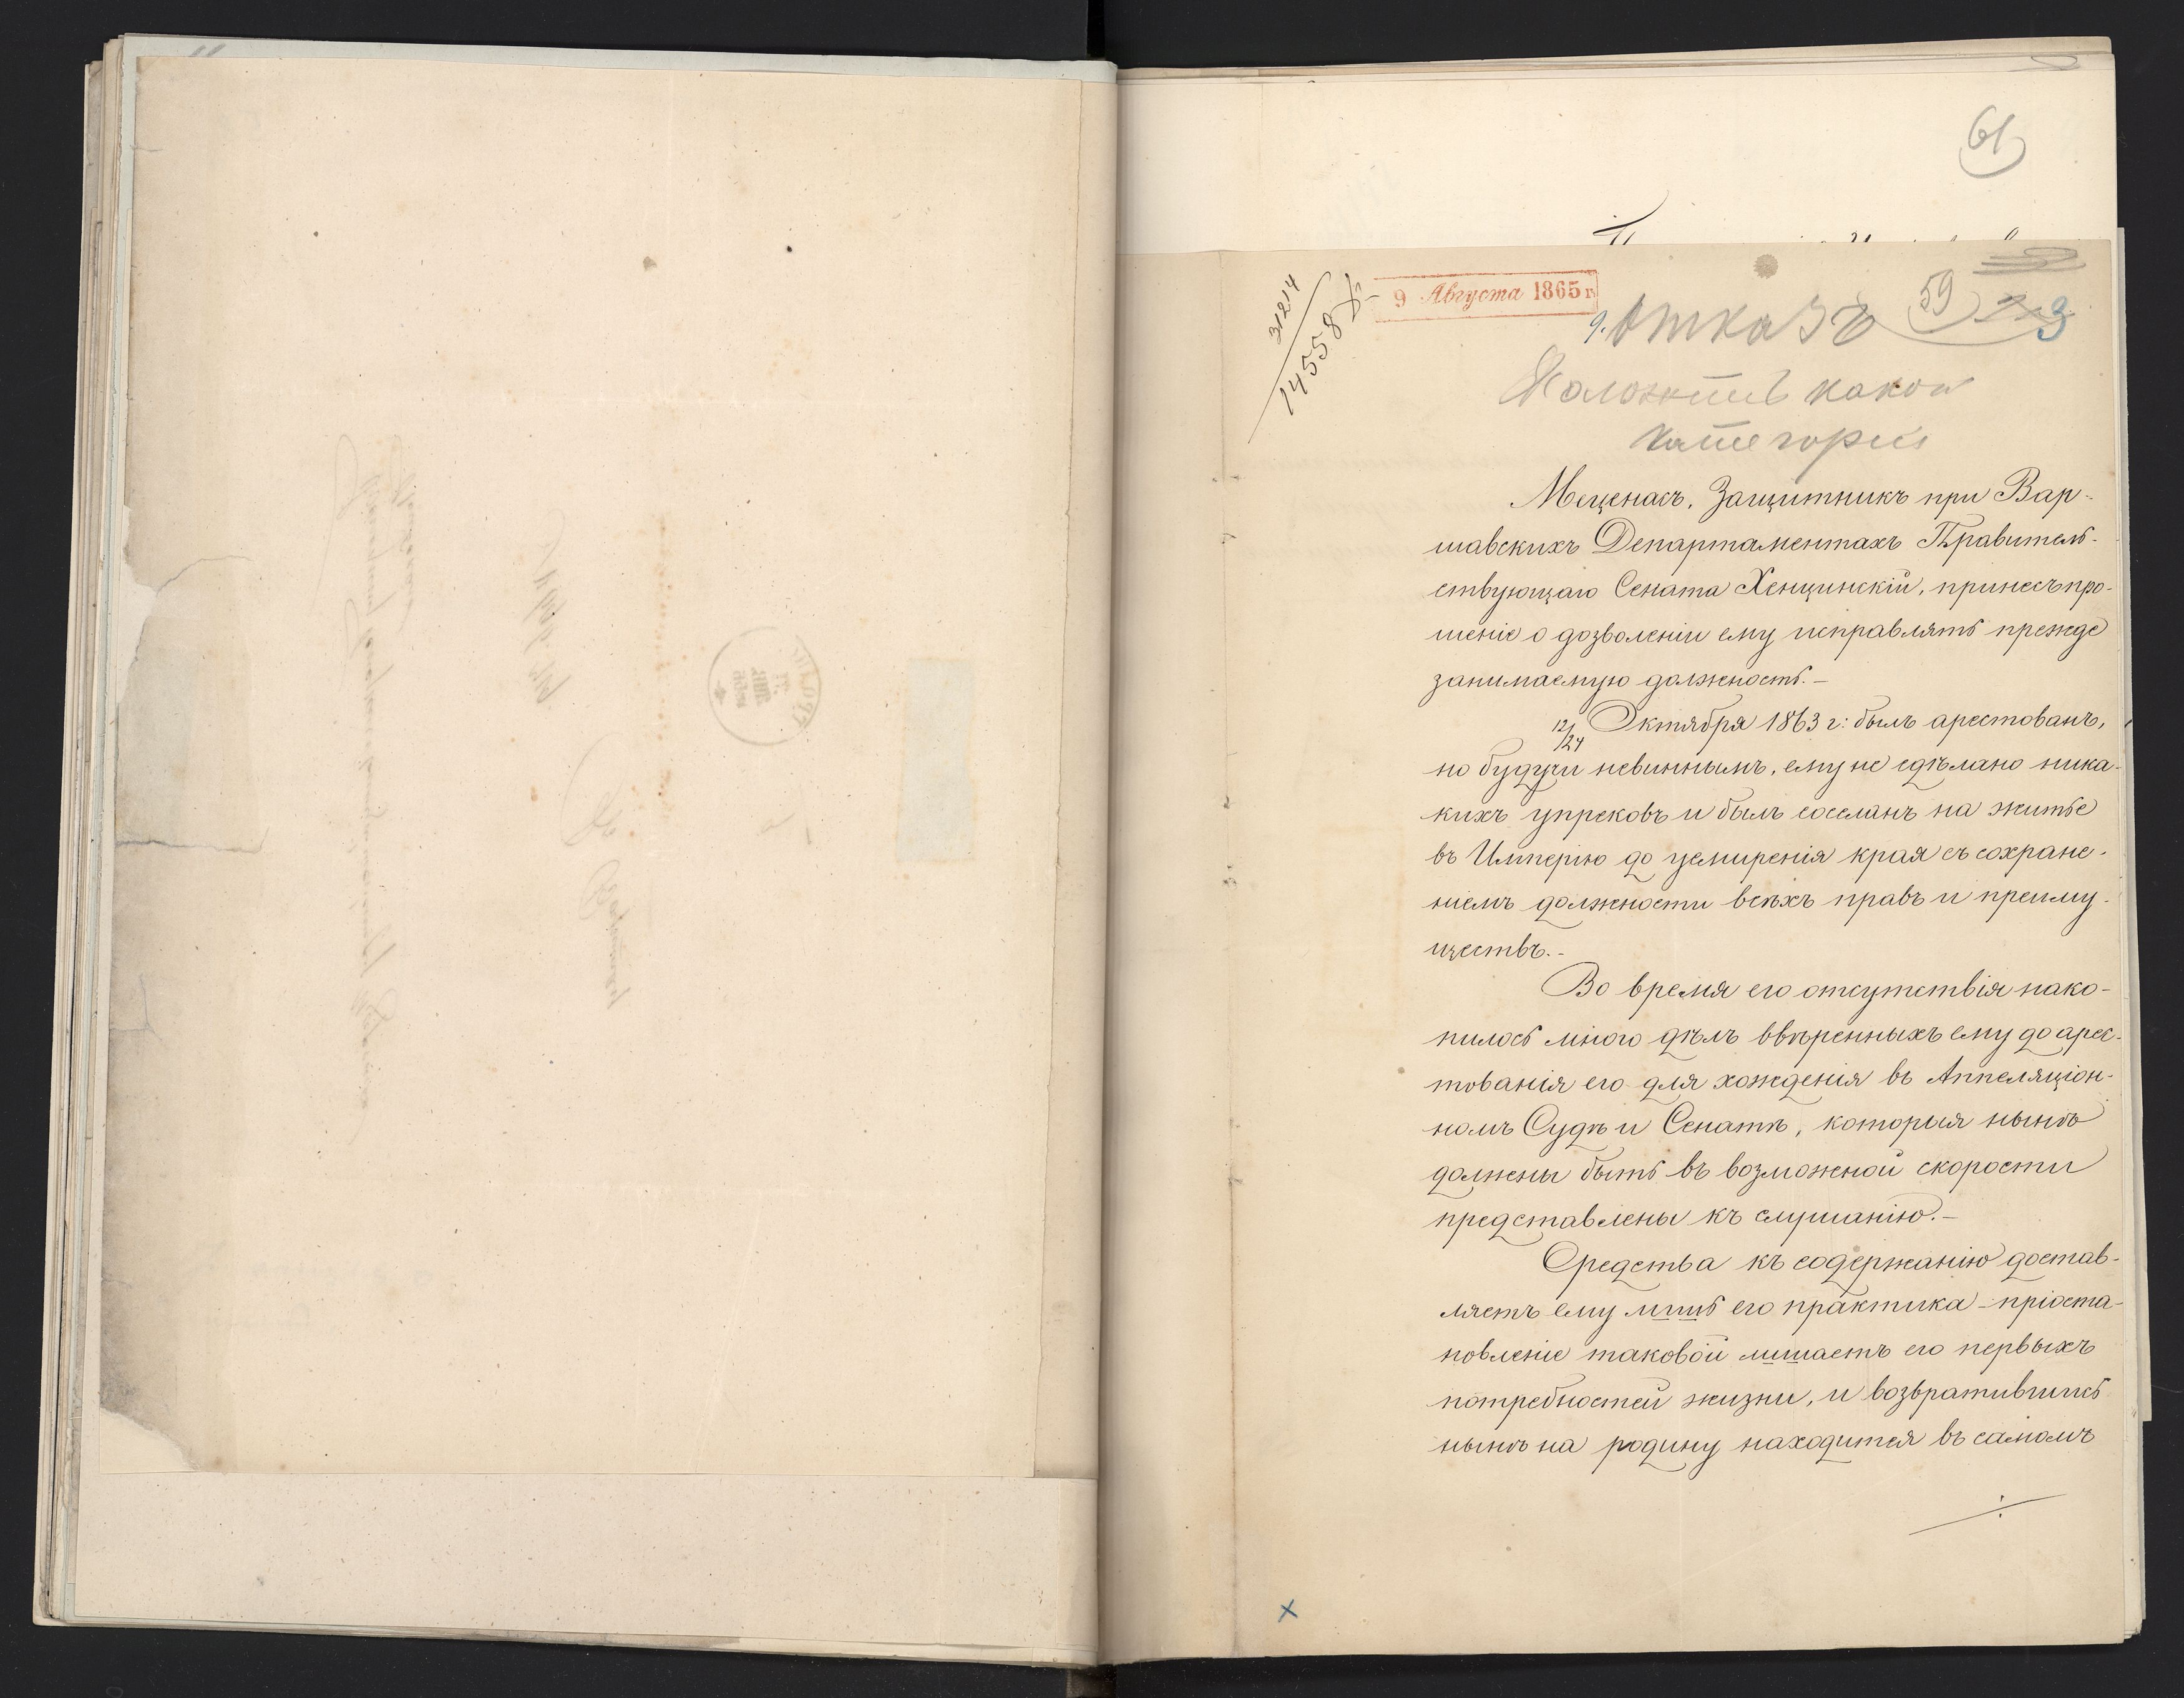 61
31214
14558
9 Августа 1865 г.
9. Отказъ 59 3
Доложить какой
категоріи
Меценасъ, Защитникъ при Вар-
шавскихъ Департаментахъ Правитель-
ствующаго Сената Хенцинскій, принесъ про-
шеніе о дозволеніи ему исправлять прежде
занимаемую должность.-
12/24 Октября 1863 г: былъ арестованъ,
но будучи невиннымъ, ему не сдѣлано ника-
кихъ упрековъ и былъ сосланъ на житье
въ Имперію до усмиренія края съ сохране-
ніемъ должности всѣхъ правъ и преиму-
ществъ.-
Во время его отсутствія нако-
пилось много дѣлъ ввѣренныхъ ему до арес-
тованія его для хожденія въ Аппеляціон-
номъ Судѣ и Сенатѣ, которыя нынѣ
должны быть въ возможной скорости
представлены къ слушанію.-
Средства къ содержанію достав-
ляетъ ему лишь его практика - пріоста-
новленіе таковой лишаетъ его первыхъ
потребностей жизни, и возвратившись
нынѣ на родину находится въ самомъ